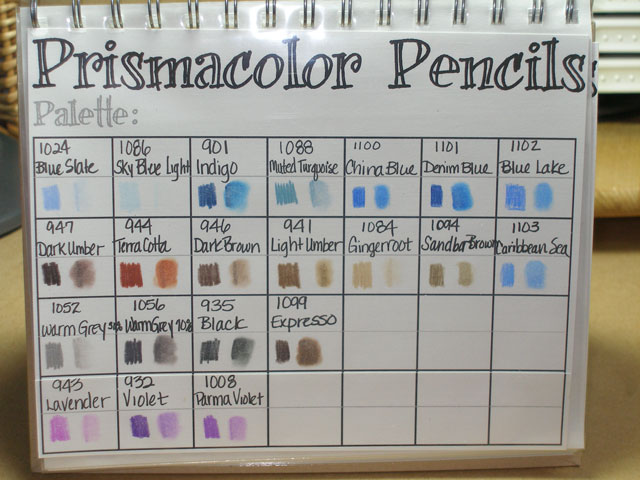 Prismacolor Pencils:
Palette:
1024 1086 901 1088 1100 1101 1102
Blue Slate Sky Blue Light Indigo Muted Turquoise China Blue Denim Blue Blue Lake
947 944 946 941 1084 1094 1103
Dark Umber Terra Cotta Dark Brown Light Umber Gingerroot Sandbar Brown Caribbean Sea
1052 1056 935 1099
Warm Grey Warm Grey Black Expresso
943 932 1008
Lavender Violet Parma Violet